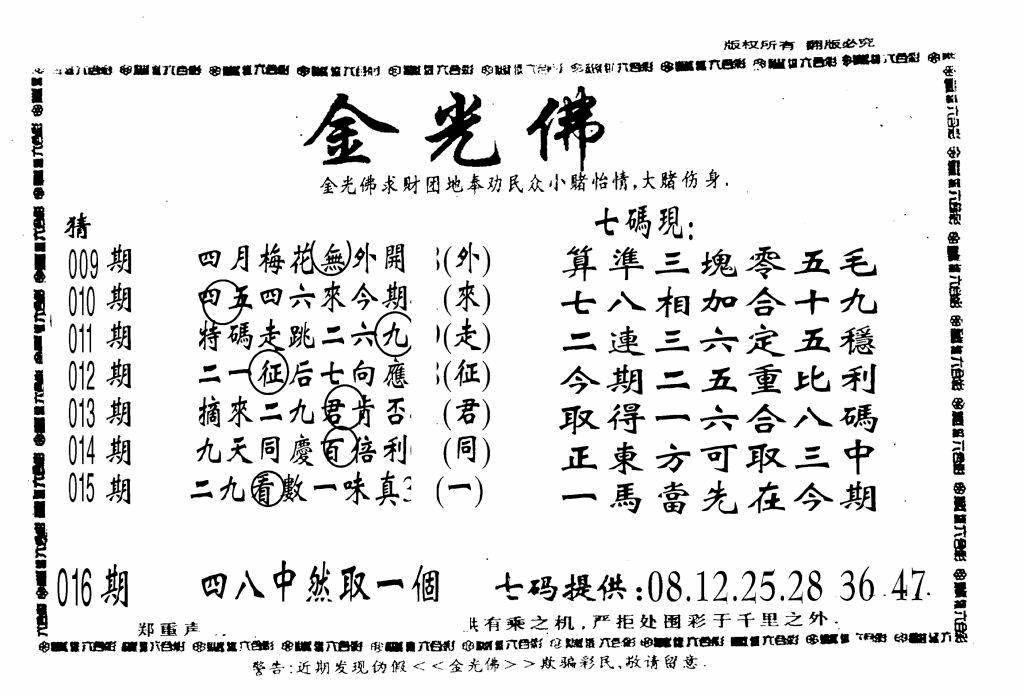 版权所有 翻版必究
金光佛
金光佛求财团地奉劝民众小赌怡情,大赌伤身.
猜
七碼現:
009期 四月梅花無外開 (外) 算準三塊零五毛
010期 四五四六來今期 (來) 七八相加合十九
011期 特碼走跳二六九 (走) 二連三六定五穩
012期 二一征后七向應 (征) 今期二五重比利
013期 摘來二九君肯否 (君) 取得一六合八碼
014期 九天同慶百倍利 (同) 正東方可取三中
015期 二九看數一味真 (一) 一馬當先在今期
016期 四八中然取一個 七码提供:08.12.25.28 36 47.
郑重声 有乘之机,严拒处围彩于千里之外.
警告:近期发现伪假<<金光佛>>欺骗彩民,敬请留意.